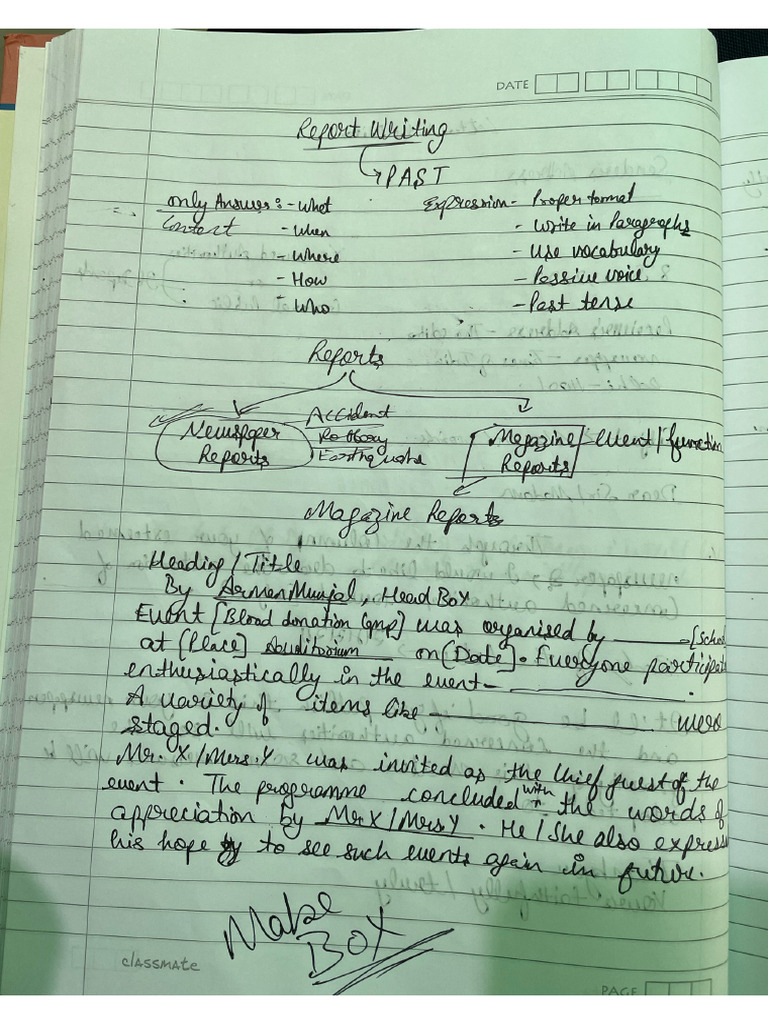 DATE
Report Writing
PAST
Only Answer :- What
Content - When
- Where
- How
- Who
Expression - Proper format
- Write in Paragraphs
- Use vocabulary
- Passive voice
- Past tense
Reports
Newspaper Reports
Accident
Robbery
Earthquake
Magazine Reports / Event / function
Magazine Reports
Heading / Title
By Arman Munjal, Head Boy
Event [Blood donation Camp] was organised by ______ [School
at [Place] Auditorium on [Date]. Everyone participat
enthusiastically in the event - ______.
A variety of items like ______ were
staged.
Mr. X / Mrs. Y was invited as the Chief guest of the
event. The programme concluded with the words of
appreciation by Mr X / Mrs Y. He / She also express
his hope to see such events again in future.
Make
BOX
classmate
PAGE